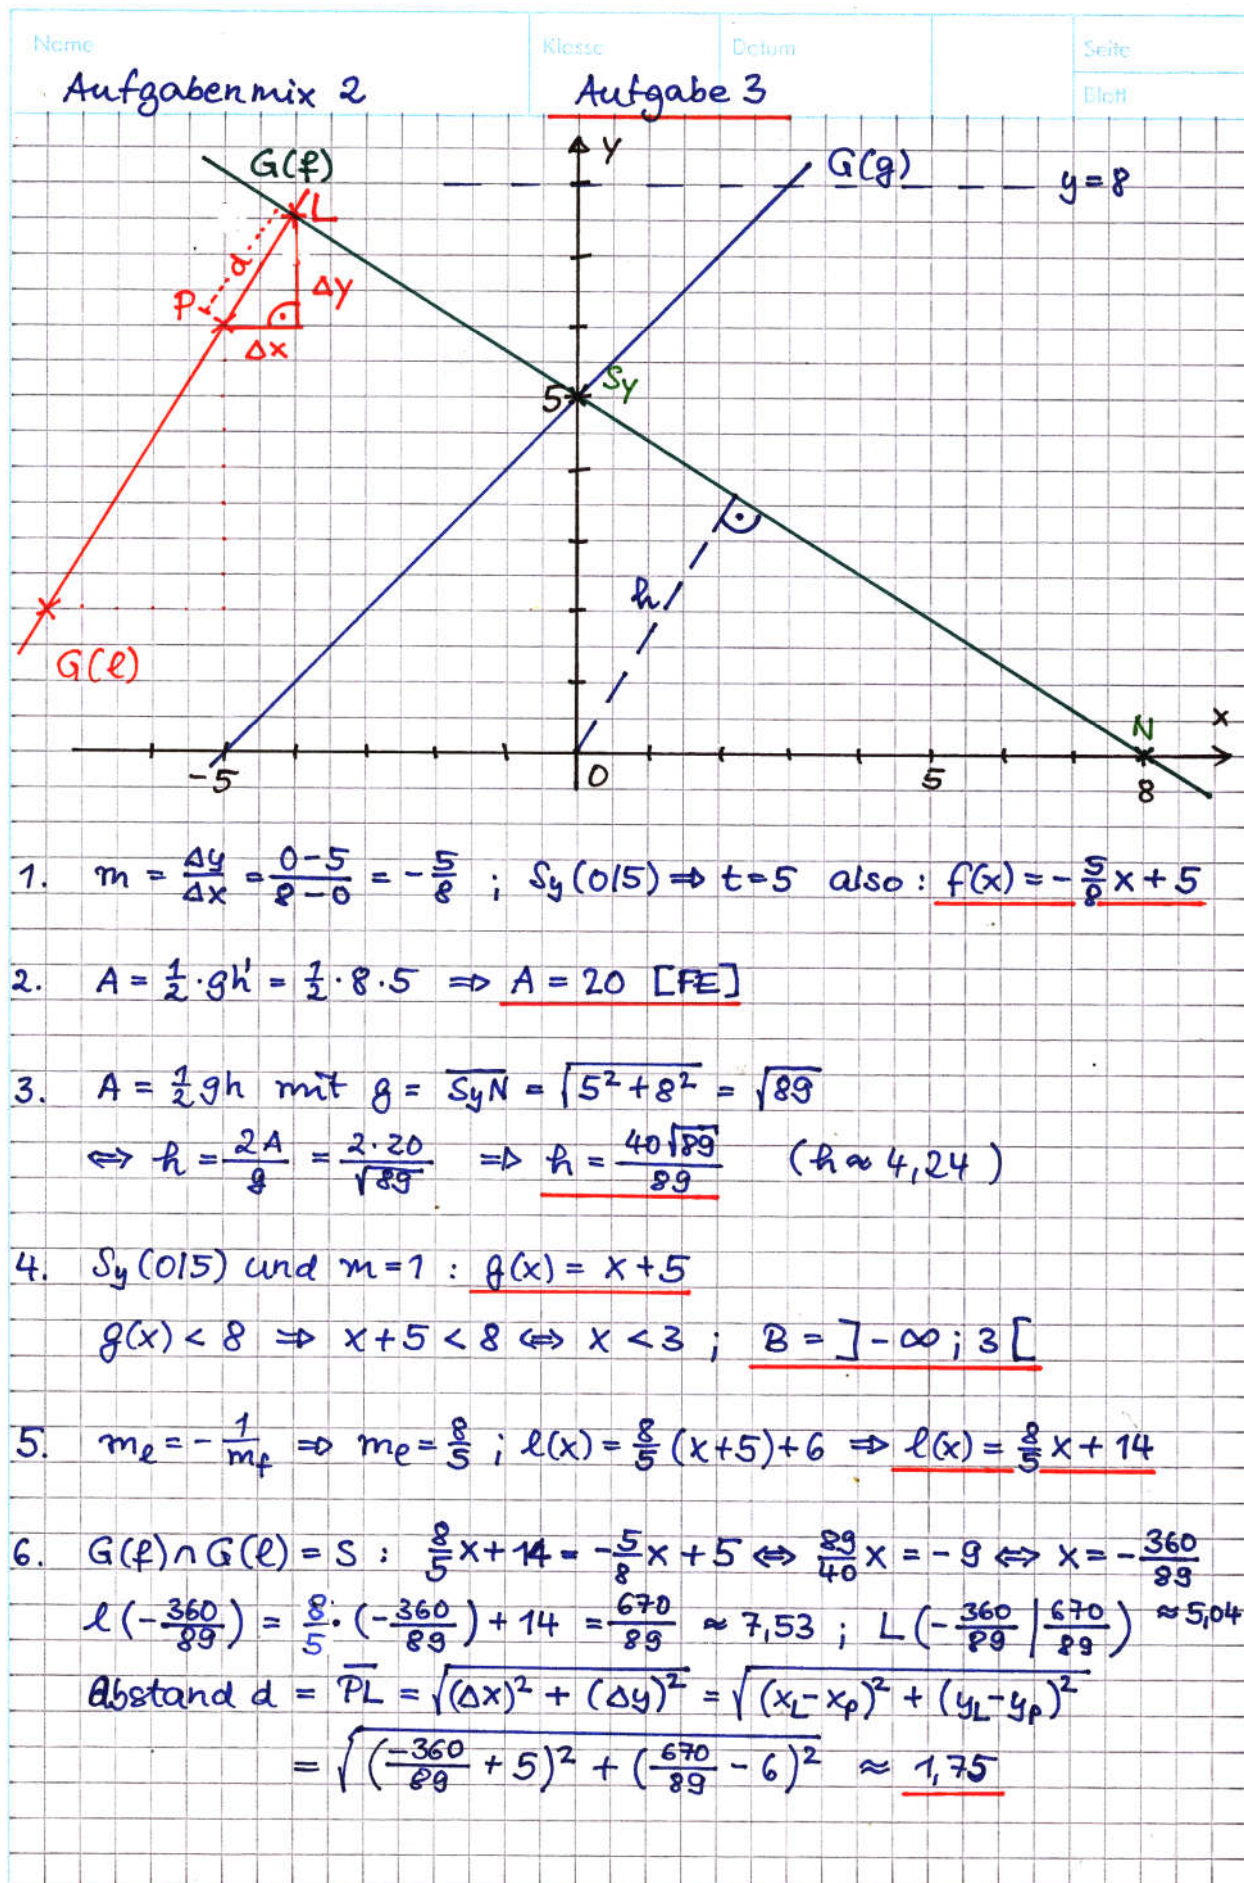 Name Klasse Datum Seite
Blatt
Aufgabenmix 2 Aufgabe 3
G(f) y G(g) y=8
L
d
P Δy
Δx
5 Sy
h
G(l)
N x
-5 0 5 8
1. m = Δy/Δx = (0-5)/(8-0) = -5/8 ; Sy(0|5) ⇒ t=5 also: f(x) = -5/8 x + 5
2. A = 1/2 · gh' = 1/2 · 8 · 5 ⇒ A = 20 [FE]
3. A = 1/2 gh mit g = S̅y̅N̅ = √(5² + 8²) = √89
⇔ h = 2A/g = 2·20/√89 ⇒ h = 40√89/89 (h ≈ 4,24)
4. Sy(0|5) und m=1 : g(x) = x+5
g(x) < 8 ⇒ x+5 < 8 ⇔ x < 3 ; B = ]-∞ ; 3[
5. mₗ = -1/m_f ⇒ mₗ = 8/5 ; l(x) = 8/5 (x+5) + 6 ⇒ l(x) = 8/5 x + 14
6. G(f) ∩ G(l) = S : 8/5 x + 14 = -5/8 x + 5 ⇔ 89/40 x = -9 ⇔ x = -360/89
l(-360/89) = 8/5 · (-360/89) + 14 = 670/89 ≈ 7,53 ; L(-360/89 | 670/89) ≈ 5,04
Abstand d = P̅L̅ = √((Δx)² + (Δy)²) = √((x_L - x_P)² + (y_L - y_P)²)
= √((-360/89 + 5)² + (670/89 - 6)²) ≈ 1,75